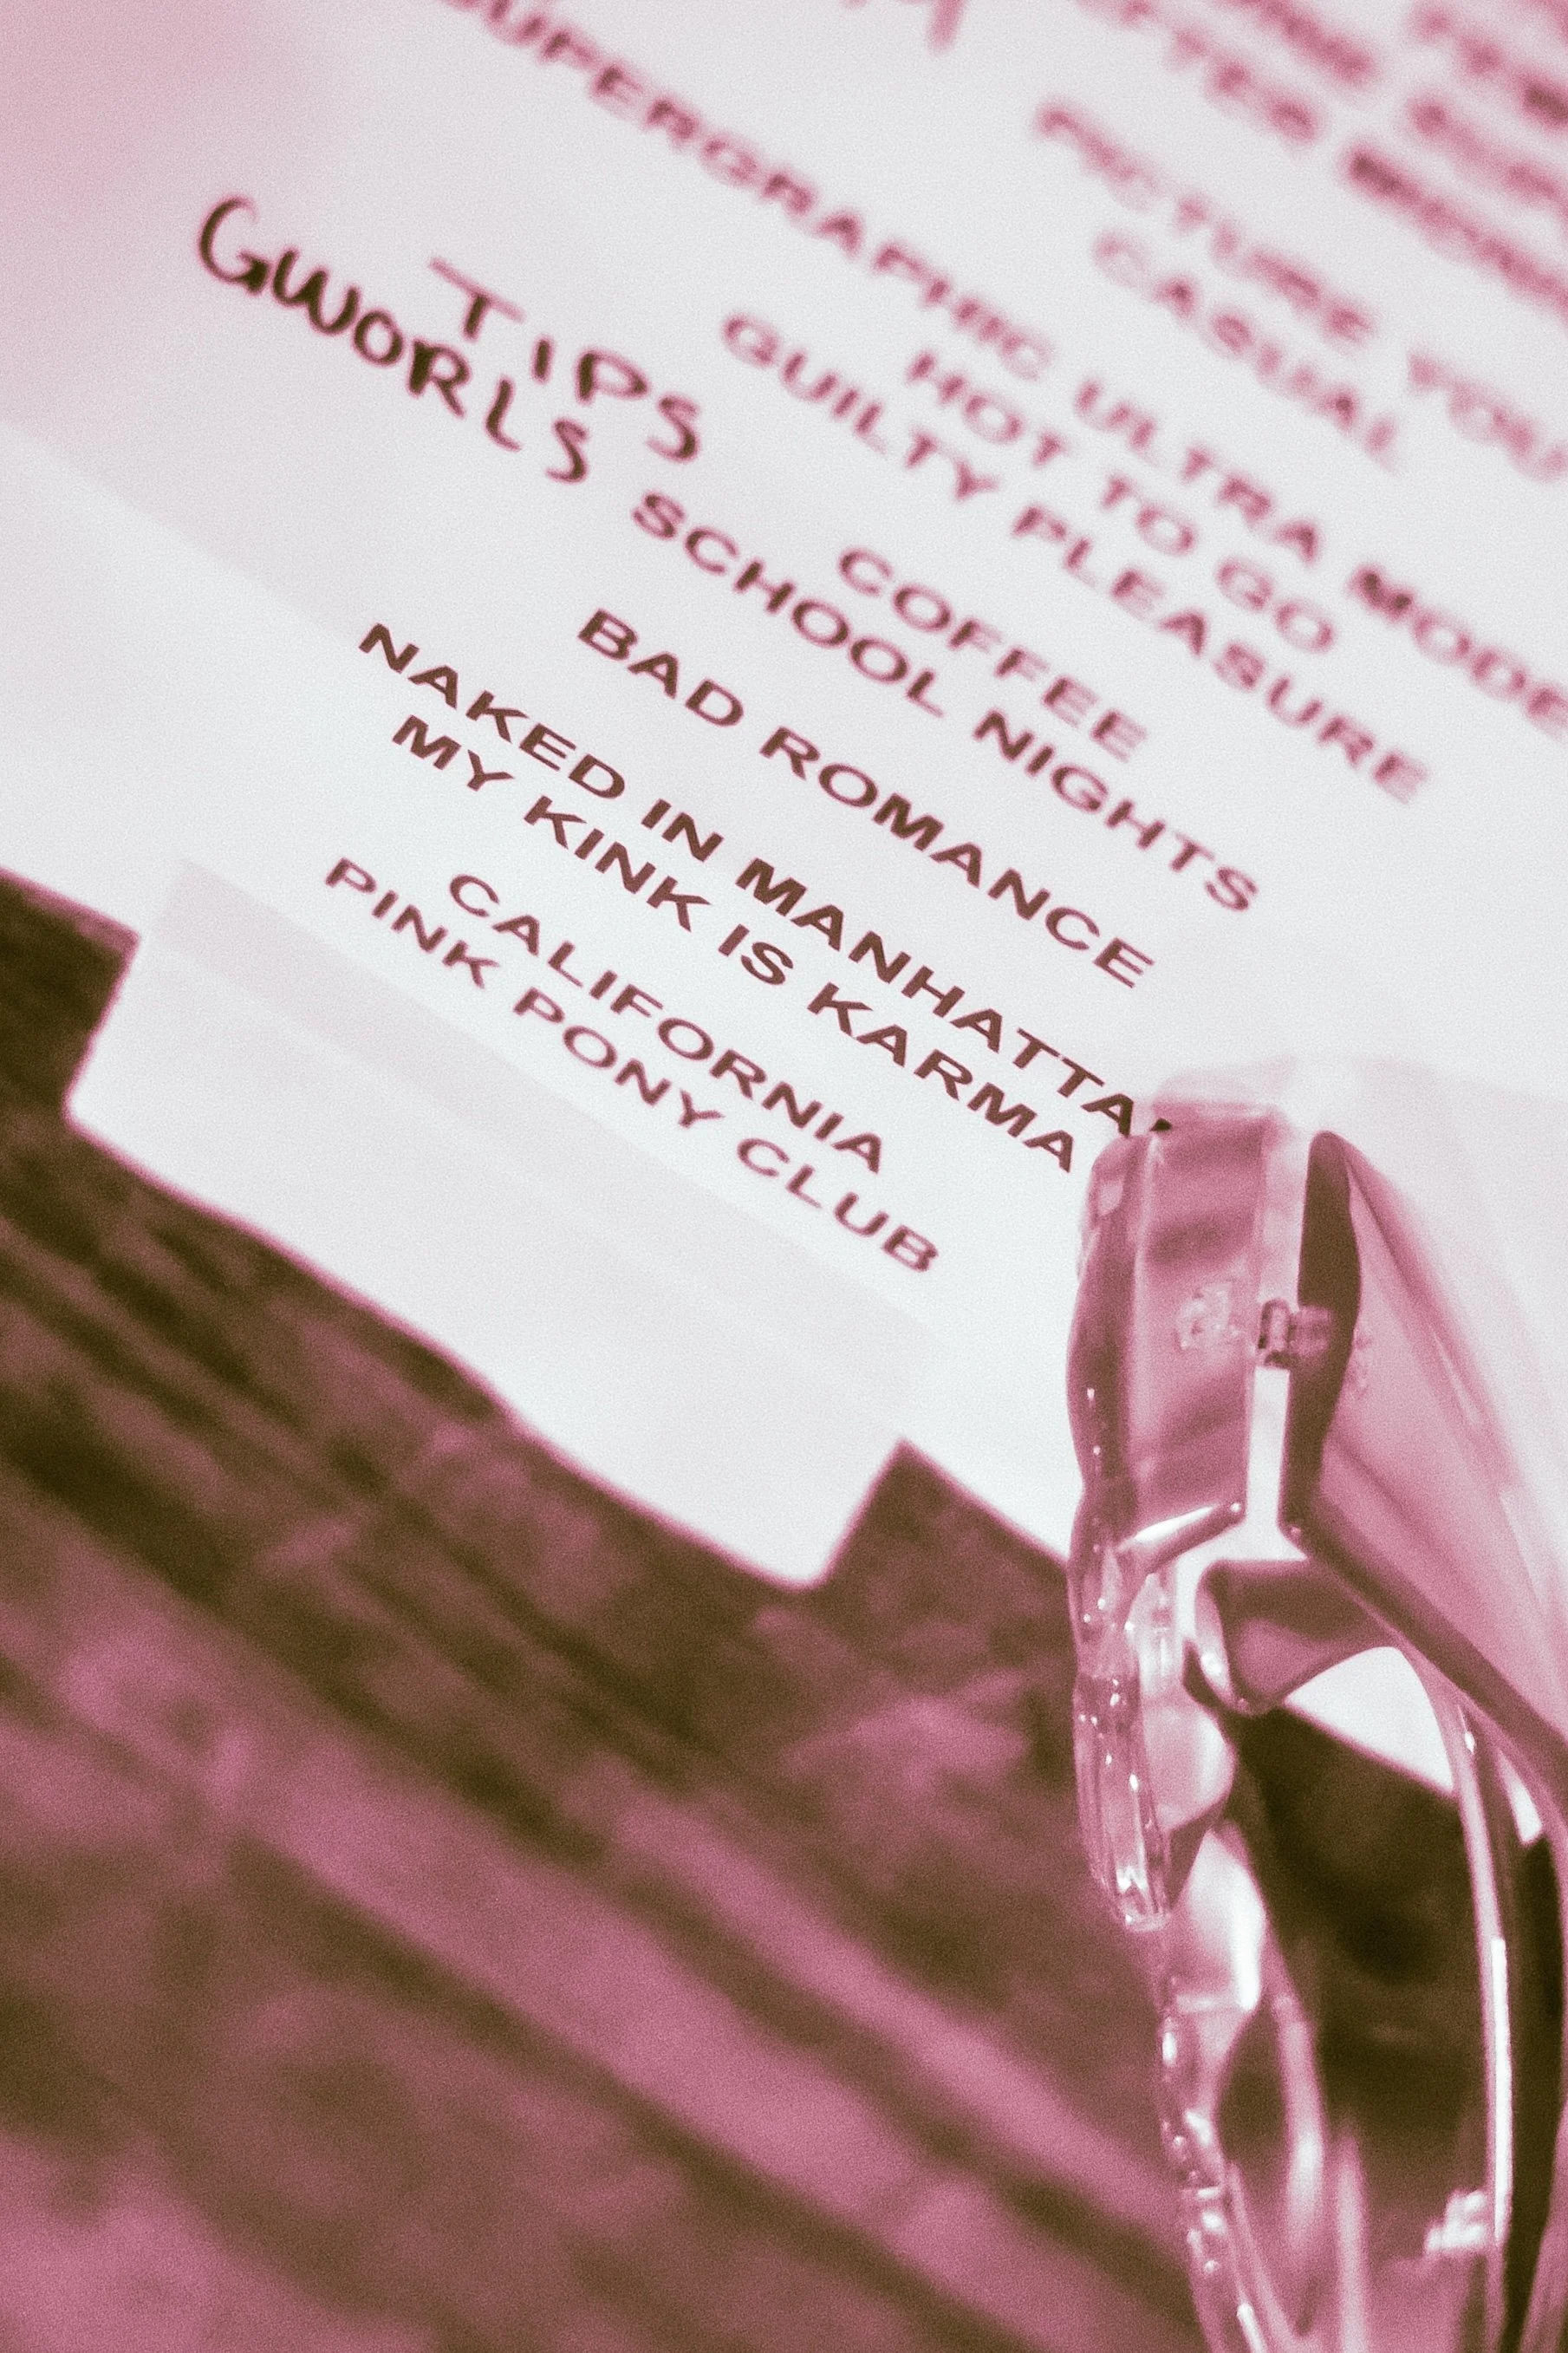 PICTURE YOU
CASUAL
SUPERGRAPHIC ULTRA MODE
HOT TO GO
GUILTY PLEASURE
TIPS
GWORLS
COFFEE
SCHOOL NIGHTS
BAD ROMANCE
NAKED IN MANHATTA
MY KINK IS KARMA
CALIFORNIA
PINK PONY CLUB